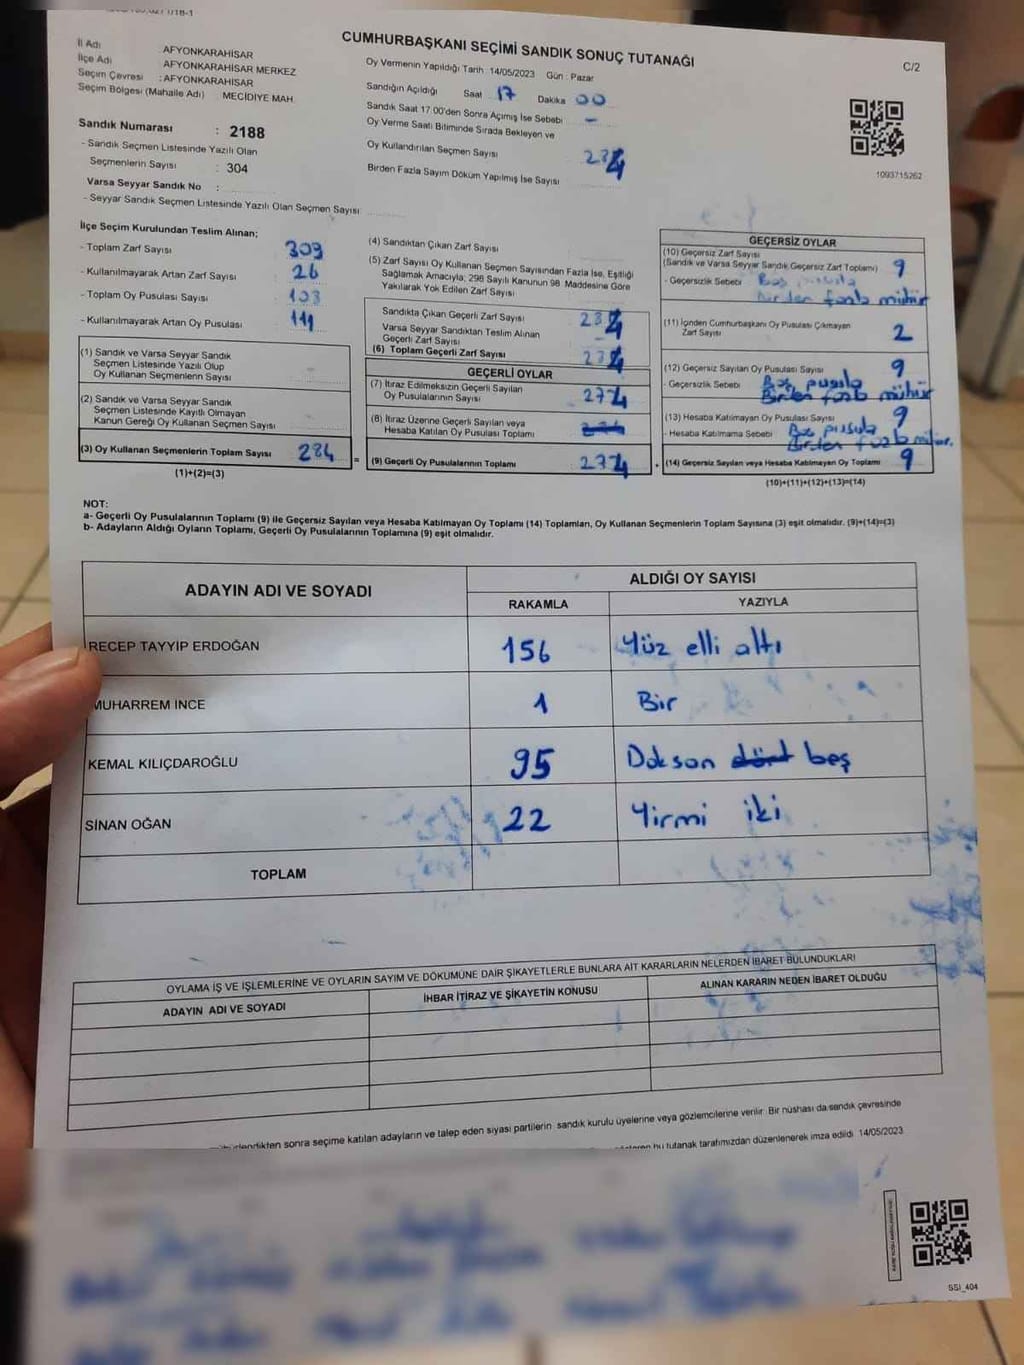 CUMHURBAŞKANI SEÇİMİ SANDIK SONUÇ TUTANAĞI
C/2
İl Adı : AFYONKARAHİSAR
İlçe Adı AFYONKARAHİSAR MERKEZ
Seçim Çevresi : AFYONKARAHİSAR
Seçim Bölgesi (Mahalle Adı) : MECİDİYE MAH.
Sandık Numarası : 2188
- Sandık Seçmen Listesinde Yazılı Olan
Seçmenlerin Sayısı : 304
Varsa Seyyar Sandık No :
- Seyyar Sandık Seçmen Listesinde Yazılı Olan Seçmen Sayısı
Oy Vermenin Yapıldığı Tarih :14/05/2023 Gün : Pazar
Sandığın Açıldığı Saat 17 Dakika 00
Sandık Saat 17.00'den Sonra Açımış İse Sebebi -
Oy Verme Saati Bitiminde Sırada Bekleyen ve
Oy Kullandırılan Seçmen Sayısı
Birden Fazla Sayım Döküm Yapılmış İse Sayısı
1093715262
İlçe Seçim Kurulundan Teslim Alınan;
- Toplam Zarf Sayısı 309
- Kullanılmayarak Artan Zarf Sayısı 26
- Toplam Oy Pusulası Sayısı
- Kullanılmayarak Artan Oy Pusulası
(1) Sandık ve Varsa Seyyar Sandık
Seçmen Listesinde Yazılı Olup
Oy Kullanan Seçmenlerin Sayısı
(2) Sandık ve Varsa Seyyar Sandık
Seçmen Listesinde Kayıtlı Olmayan
Kanun Gereği Oy Kullanan Seçmen Sayısı
(3) Oy Kullanan Seçmenlerin Toplam Sayısı 284
(1)+(2)=(3)
=
(4) Sandıktan Çıkan Zarf Sayısı
(5) Zarf Sayısı Oy Kullanan Seçmen Sayısından Fazla İse, Eşitliği
Sağlamak Amacıyla, 298 Sayılı Kanunun 98. Maddesine Göre
Yakılarak Yok Edilen Zarf Sayısı
Sandıkta Çıkan Geçerli Zarf Sayısı
Varsa Seyyar Sandıktan Teslim Alınan
Geçerli Zarf Sayısı
(6) Toplam Geçerli Zarf Sayısı
GEÇERLİ OYLAR
(7) İtiraz Edilmeksizin Geçerli Sayılan
Oy Pusulalarının Sayısı 274
(8) İtiraz Üzerine Geçerli Sayılan veya
Hesaba Katılan Oy Pusulası Toplamı
(9) Geçerli Oy Pusulalarının Toplamı 274
GEÇERSİZ OYLAR
(10) Geçersiz Zarf Sayısı
(Sandık ve Varsa Seyyar Sandık Geçersiz Zarf Toplamı) 9
- Geçersizlik Sebebi Boş pusula
Birden fazla mühür
(11) İçinden Cumhurbaşkanı Oy Pusulası Çıkmayan
Zarf Sayısı 2
(12) Geçersiz Sayılan Oy Pusulası Sayısı 9
- Geçersizlik Sebebi Boş pusula
Birden fazla mühür
(13) Hesaba Katılmayan Oy Pusulası Sayısı 9
- Hesaba Katılmama Sebebi Boş pusula
Birden fazla mühür.
(14) Geçersiz Sayılan veya Hesaba Katılmayan Oy Toplamı 9
(10)+(11)+(12)+(13)=(14)
NOT:
a- Geçerli Oy Pusulalarının Toplamı (9) ile Geçersiz Sayılan veya Hesaba Katılmayan Oy Toplamı (14) Toplamları, Oy Kullanan Seçmenlerin Toplam Sayısına (3) eşit olmalıdır. (9)+(14)=(3)
b- Adayların Aldığı Oyların Toplamı, Geçerli Oy Pusulalarının Toplamına (9) eşit olmalıdır.
ADAYIN ADI VE SOYADI
ALDIĞI OY SAYISI
RAKAMLA YAZIYLA
RECEP TAYYIP ERDOĞAN 156 Yüz elli altı
MUHARREM İNCE 1 Bir
KEMAL KILIÇDAROĞLU 95 Doksan dört beş
SİNAN OĞAN 22 Yirmi iki
TOPLAM
OYLAMA İŞ VE İŞLEMLERİNE VE OYLARIN SAYIM VE DÖKÜMÜNE DAİR ŞİKAYETLERLE BUNLARA AİT KARARLARIN NELERDEN İBARET BULUNDUKLARI
ADAYIN ADI VE SOYADI İHBAR İTİRAZ VE ŞİKAYETİN KONUSU ALINAN KARARIN NEDEN İBARET OLDUĞU
sonra seçime katılan adayların ve talep eden siyasi partilerin sandık kurulu üyelerine veya gözlemcilerine verilir. Bir nüshası da sandık çevresinde
bu tutanak tarafımızdan düzenlenerek imza edildi. 14/05/2023
SSI_404